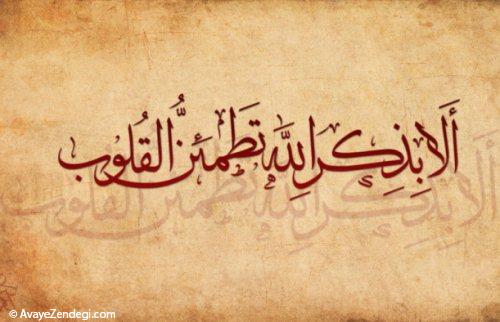 أَلَا بِذِكِرَ اللَّهِ تَطَمَئِنُّ القُلُوب
© AvayeZendegi.com